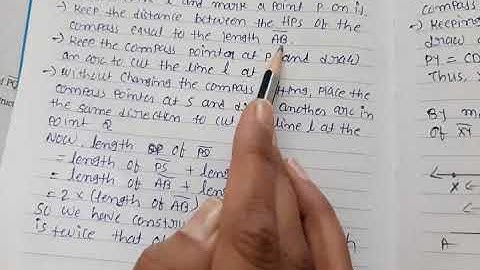 l and mark a point P on is.
→ Keep the distance between the tips of the
compass equal to the length AB.
→ Keep the compass pointer at P and draw
an arc to cut the line l at
→ Without changing the compass setting, place the
compass pointer at S and draw another arc in
the same direction to cut line l at the
point Q
Now, length of PQ
= length of PS + leng
= length of AB + leng
= 2 × (length of AB)
So we have constru
is twice that of
h
→ Keeping
draw a
PY = CD
Thus,
By m
of XY
X
A